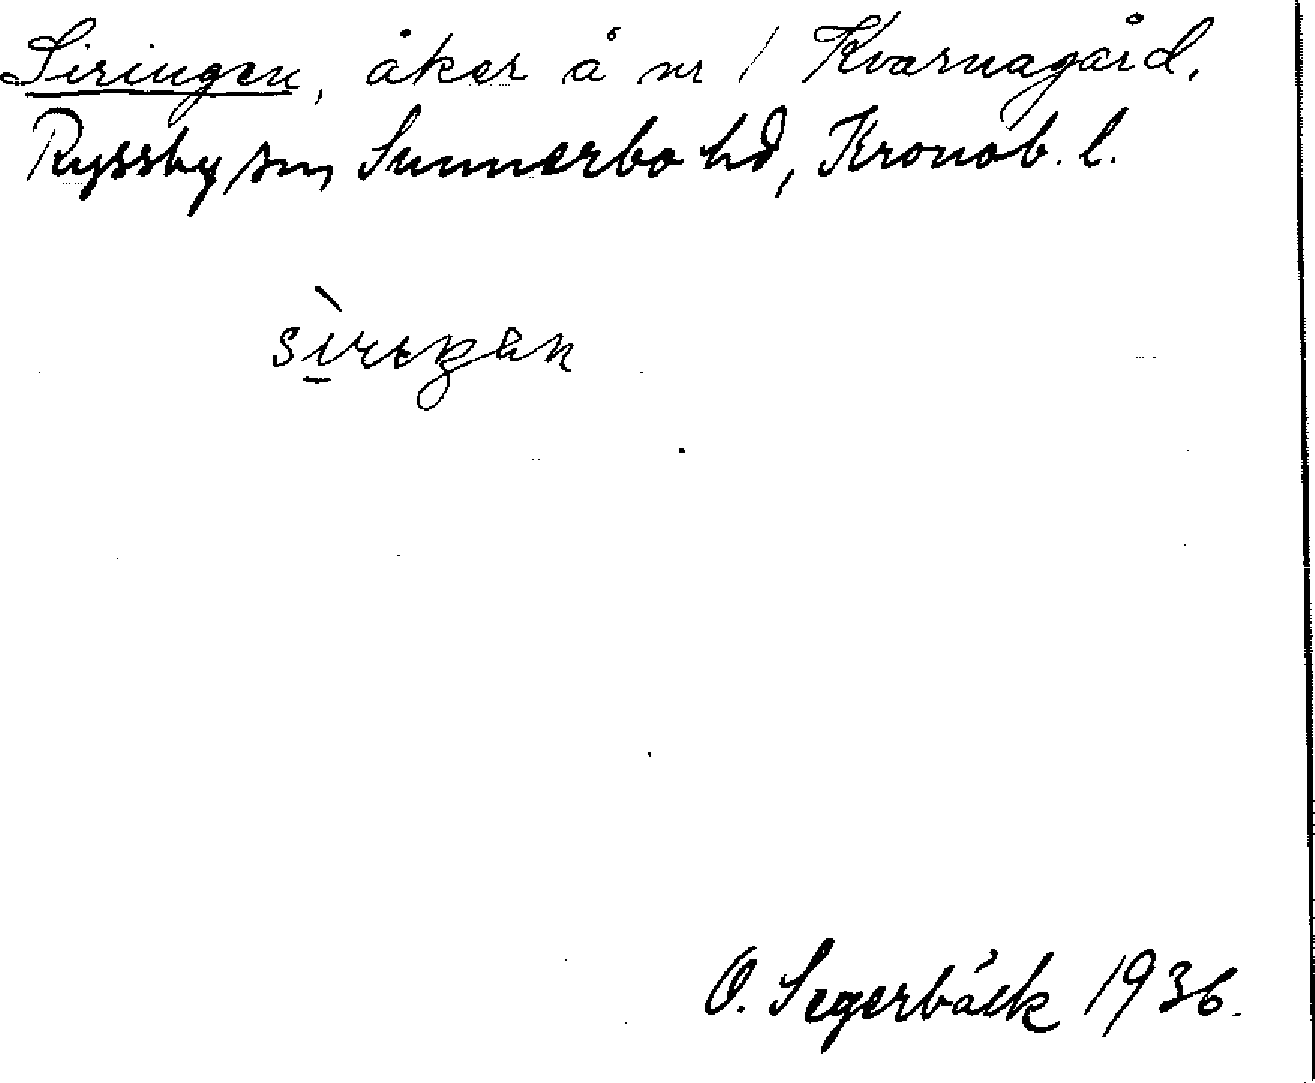 Siringen, åker å nr 1 Kvarnagård.
Ryssby sn, Sunnerbo hd, Kronob. l.
O. Segerbäck 1936.